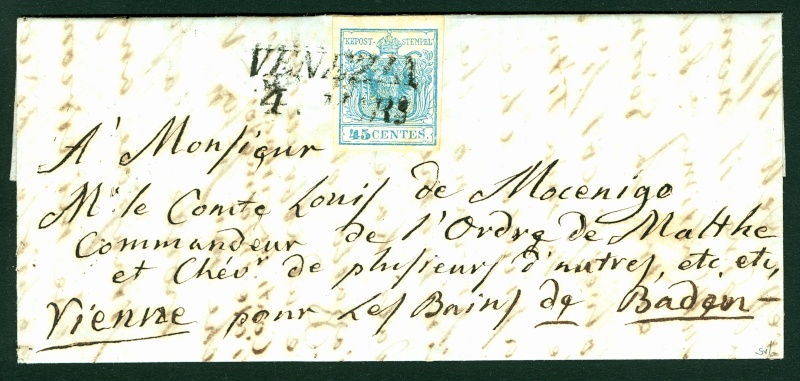 KKPOST-STEMPEL
VENEZIA
45 CENTES.
A' Monsieur
Mr. le Comte Louis de Mocenigo
Commandeur de l'Ordre de Malthe
et Chévr. de plusieurs d'autres, etc etc,
Vienne pour Les Bains de Baden